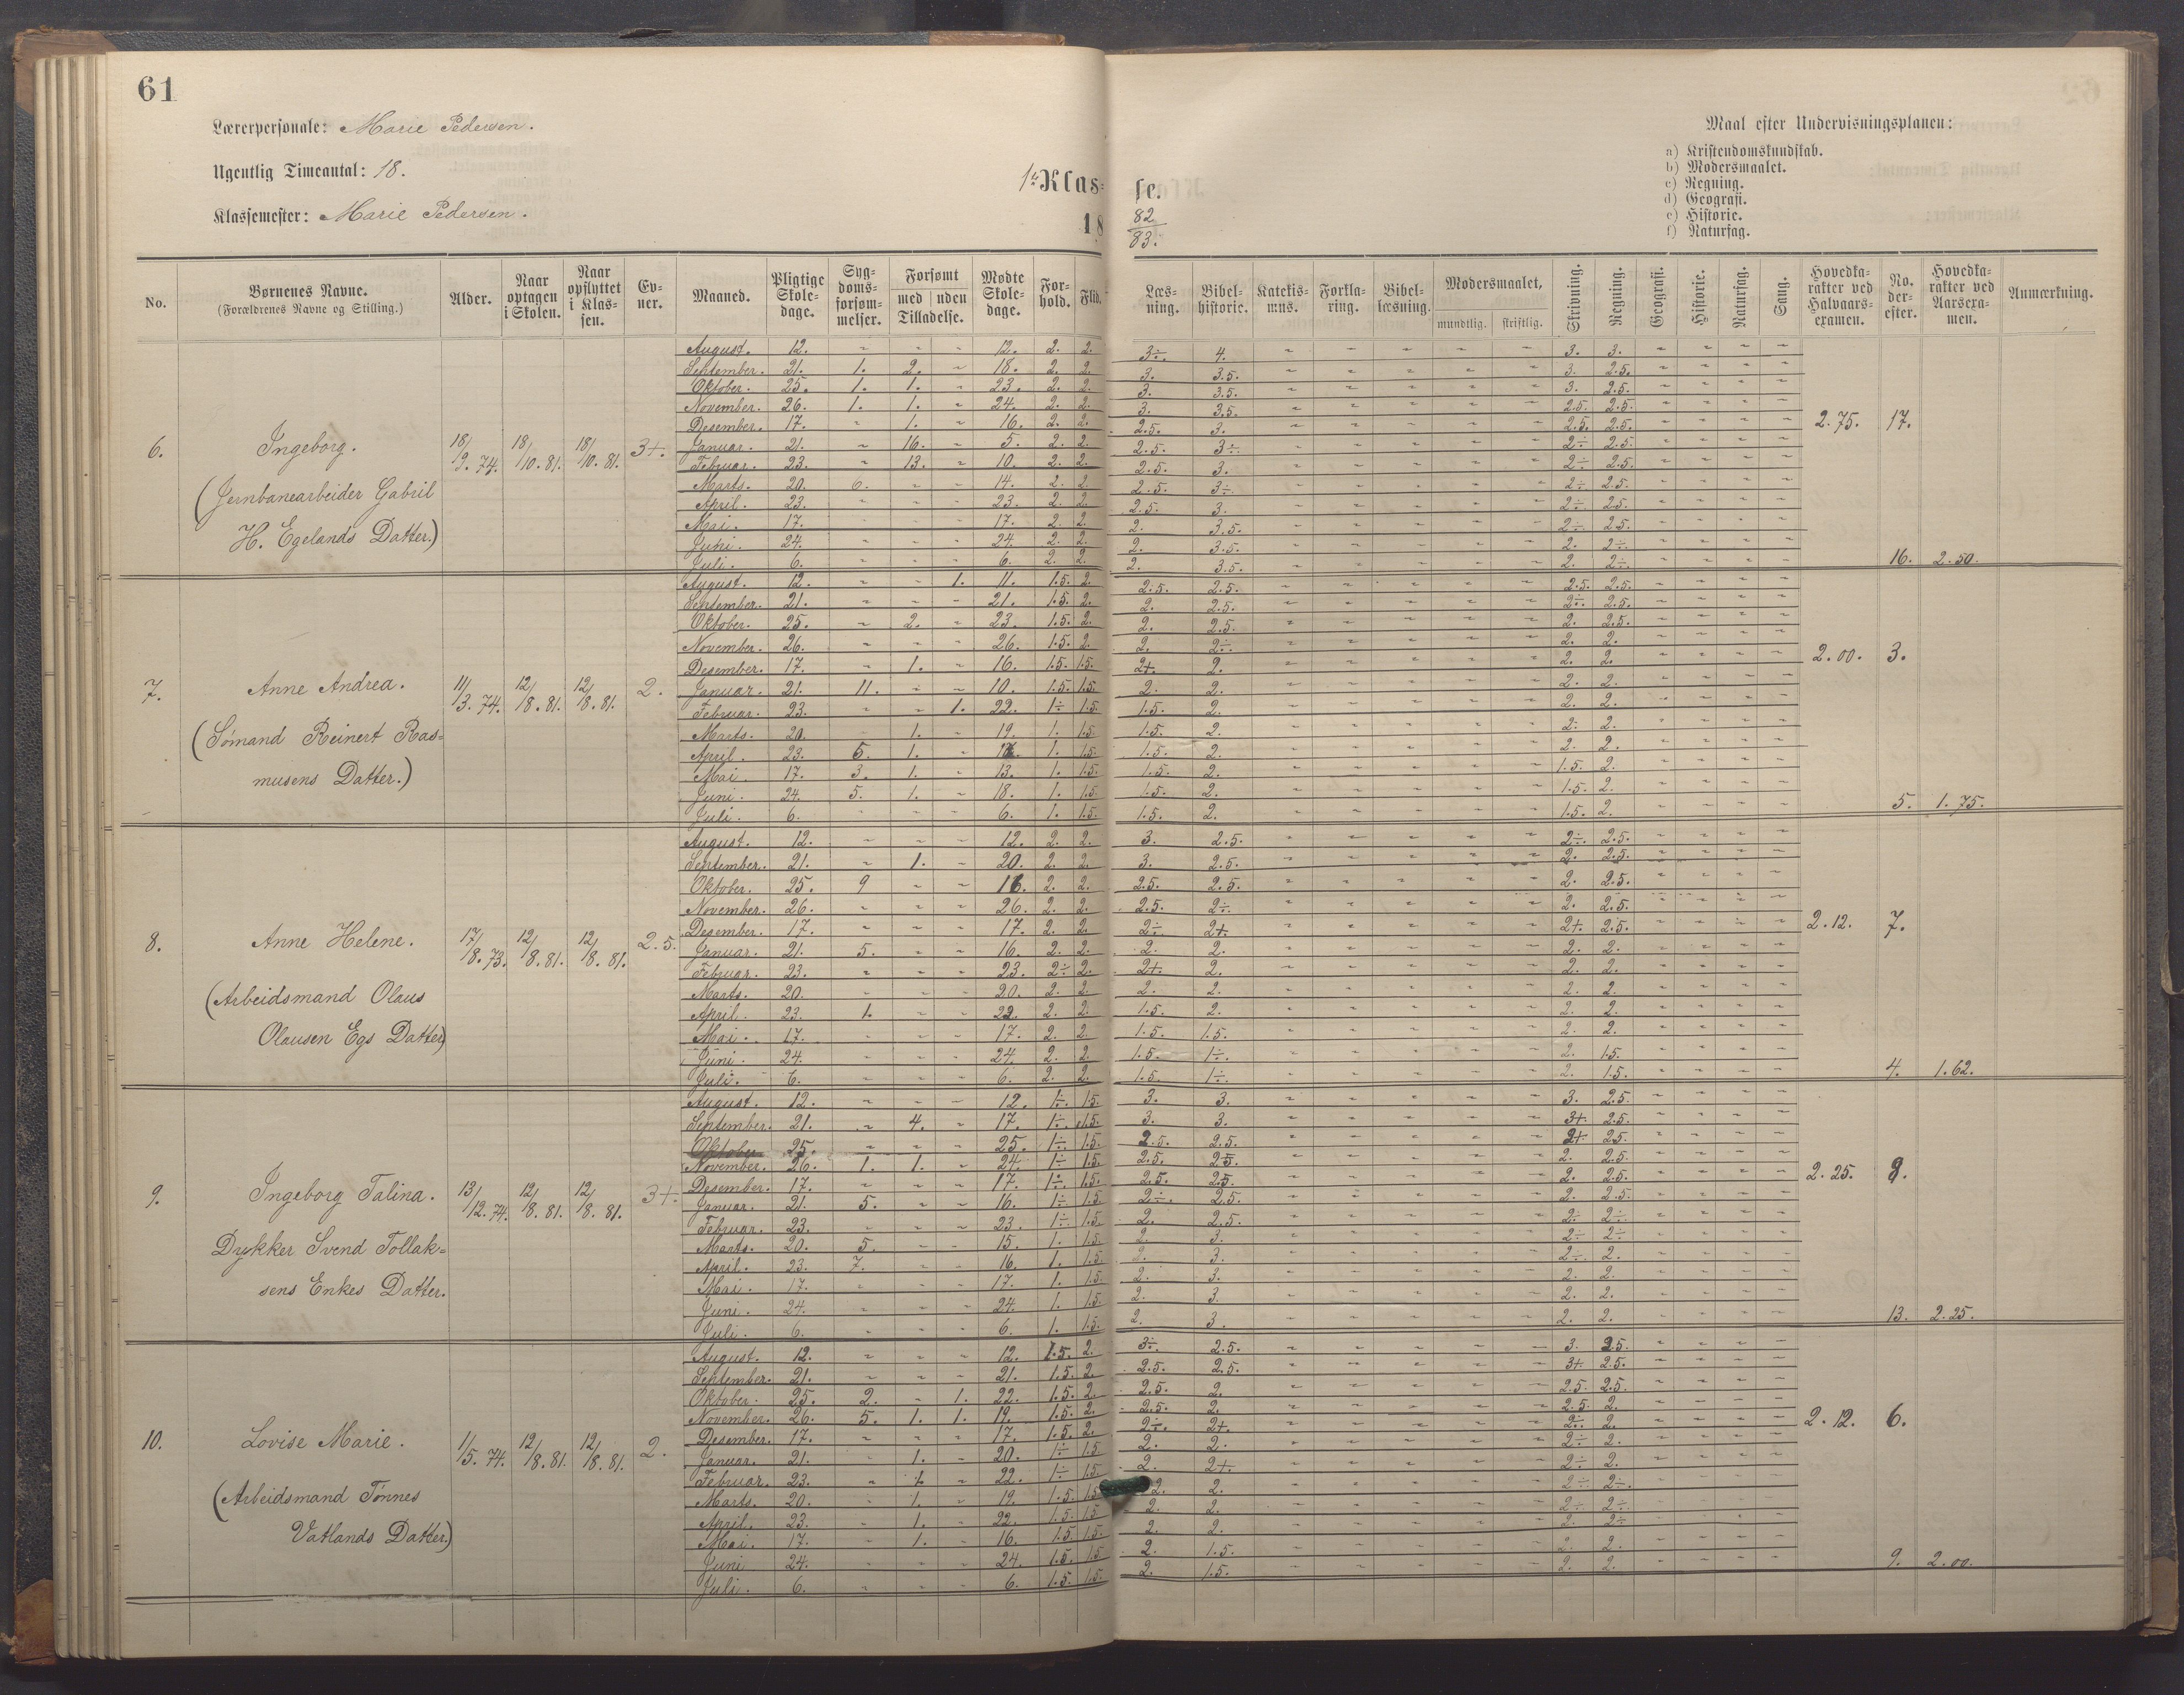 61
Lærerpersonale: Marie Pedersen.
Ugentlig Timeantal: 18.
Klassemester: Marie Pedersen.
1ste Klasse.
1882/83.
Maal efter Undervisningsplanen:
a) Kristendomskundskab.
b) Modersmaalet.
c) Regning.
d) Geografi.
e) Historie.
f) Naturfag.
No. | Børnenes Navne. (Forældrenes Navne og Stilling.) | Alder. | Naar optagen i Skolen. | Naar opflyttet i Klassen. | Evner. | Maaned. | Pligtige Skoledage. | Sygdomsforsømmelser. | Forsømt med Tilladelse. | uden Tilladelse. | Mødte Skoledage. | Forhold. | Flid. | Læsning. | Bibelhistorie. | Katekismus. | Forklaring. | Bibellæsning. | Modersmaalet, mundtlig. | skriftlig. | Skrivning. | Regning. | Geografi. | Historie. | Naturfag. | Sang. | Hovedkarakter ved Halvaarsexamen. | No. derefter. | Hovedkarakter ved Aarsexamen. | Anmærkning.
6. Ingeborg. 18/9. 74. 18/10. 81. 18/10. 81. 3+. 2.75. 17.
(Jernbanearbeider Gabril
H. Egelands Datter.)
August. 12. - - - 12. 2. 2. 3÷. 4. - - - - - 3. 3. - - - -
September. 21. 1. 2. - 18. 2. 2. 3. 3.5. - - - - - 3. 2.5. - - - -
Oktober. 25. 1. 1. - 23. 2. 2. 3. 3.5. - - - - - 3. 2.5. - - - -
November. 26. 1. 1. - 24. 2. 2. 3. 3.5. - - - - - 2.5. 2.5. - - - -
Desember. 17. - 1. - 16. 2. 2. 2.5. 3. - - - - - 2.5. 2.5. - - - -
Januar. 21. - 16. - 5. 2. 2. 2.5. 3÷. - - - - - 2÷ 2.5. - - - -
Februar. 23. - 13. - 10. 2. 2. 2.5. 3. - - - - - 2÷ 2.5. - - - -
Marts. 20. 6. - - 14. 2. 2. 2.5. 3÷. - - - - - 2÷ 2.5. - - - -
April. 23. - - - 23. 2. 2. 2.5. 3. - - - - - 2÷ 2.5. - - - -
Mai. 17. - - - 17. 2. 2. 2. 3.5. - - - - - 2÷ 2.5. - - - -
Juni. 24. - - - 24. 2. 2. 2. 3.5. - - - - - 2. 2÷. - - - -
Juli. 6. - - - 6. 2. 2. 2. 3.5. - - - - - 2. 2÷. - - - - 16. 2.50.
7. Anne Andrea. 11/3. 74. 12/8. 81. 12/8. 81. 2. 2.00. 3.
(Sømand Reinert Ras=
musens Datter.)
August. 12. - - 1. 11. 1.5. 2. 2.5. 2.5. - - - - - 2.5. 2.5. - - - -
September. 21. - - - 21. 1.5. 2. 2. 2.5. - - - - - 2÷. 2.5. - - - -
Oktober. 25. - 2. - 23. 1.5. 2. 2. 2.5. - - - - - 2. 2.5. - - - -
November. 26. - - - 26. 1.5. 2. 2. 2÷. - - - - - 2. 2. - - - -
Desember. 17. - 1. - 16. 1.5. 1.5. 2+. 2. - - - - - 2. 2. - - - -
Januar. 21. 11. - - 10. 1.5. 1.5. 2. 2. - - - - - 2. 2. - - - -
Februar. 23. - - 1. 22. 1÷ 1.5. 1.5. 2. - - - - - 2. 2. - - - -
Marts. 20. - 1. - 19. 1. 1.5. 1.5. 2. - - - - - 2. 2. - - - -
April. 23. 5. 1. - 1. 1.5. 1.5. 2. - - - - - 2. 2. - - - -
Mai. 17. 3. 1. - 13. 1. 1.5. 1.5. 2. - - - - - 1.5. 2. - - - -
Juni. 24. 5. 1. - 18. 1. 1.5. 1.5. 2. - - - - - 1.5. 2. - - - -
Juli. 6. - - - 6. 1. 1.5. 1.5. 2. - - - - - 1.5. 2. - - - - 5. 1.75.
8. Anne Helene. 17/8. 73. 12/8. 81. 12/8. 81. 2.5. 2.12. 7.
(Arbeidsmand Olaus
Olausen Egs Datter)
August. 12. - - - 12. 2. 2. 3. 2.5. - - - - - 2÷. 2.5. - - - -
September. 21. - 1. - 20. 2. 2. 3. 2.5. - - - - - 2. 2.5. - - - -
Oktober. 25. 9 - - 16. 2. 2. 2.5. 2.5. - - - - - 2. 2.5. - - - -
November. 26. - - - 26. 2. 2. 2.5. 2÷. - - - - - 2. 2.5. - - - -
Desember. 17. - - - 17. 2. 2. 2÷. 2+. - - - - - 2+ 2.5. - - - -
Januar. 21. 5. - - 16. 2. 2. 2. 2. - - - - - 2. 2. - - - -
Februar. 23. - - - 23. 2÷ 2. 2+. 2. - - - - - 2. 2. - - - -
Marts. 20. - - - 20. 2. 2. 2. 2. - - - - - 2. 2. - - - -
April. 23. 1. - - 22. 2. 2. 1.5. 2. - - - - - 2. 2. - - - -
Mai. 17. - - - 17. 2. 2. 1.5. 1.5. - - - - - 2. 2. - - - -
Juni. 24. - - - 24. 2. 2. 1.5. 1÷. - - - - - 2. 1.5. - - - -
Juli. 6. - - - 6. 2. 2. 1.5. 1÷. - - - - - 2. 1.5. - - - - 4. 1.62.
9. Ingeborg Talina. 13/12. 74. 12/8. 81. 12/8. 81. 3+. 2.25. 8.
Dykker Svend Tollak=
sens Enkes Datter.
August. 12. - - - 12. 1÷. 1.5. 3. 3. - - - - - 3. 2.5. - - - -
September. 21. - 4. - 17. 1÷. 1.5. 3. 3. - - - - - 3+. 2.5. - - - -
Oktober 25. - - - 25. 1÷. 1.5. 2.5. 2.5. - - - - - 2+ 2.5. - - - -
November. 26. 1. 1. - 24. 1÷ 1.5. 2.5. 2.5. - - - - - 2. 2.5. - - - -
Desember. 17. - - - 17. 1÷. 1.5. 2.5. 2.5. - - - - - 2. 2.5. - - - -
Januar. 21. 5. - - 16. 1÷ 1.5. 2÷. 2.5. - - - - - 2. 2.5. - - - -
Februar. 23. - - - 23. 1÷ 1.5. 2. 2.5. - - - - - 2÷ 2÷. - - - -
Marts. 20. 5. - - 15. 1. 1.5. 2. 3. - - - - - 2÷ 2÷ - - - -
April. 23. 7. - - 16. 1. 1.5. 2. 3. - - - - - 2÷ 2. - - - -
Mai. 17. - - - 17. 1. 1.5. 2. 3. - - - - - 2. 2. - - - -
Juni. 24. - - - 24. 1. 1.5. 2. 3. - - - - - 2. 2. - - - -
Juli. 6. - - - 6. 1. 1.5. 2. 3. - - - - - 2. 2. - - - - 13. 2.25.
10. Lovise Marie. 1/5. 74. 12/8. 81. 12/8. 81. 2. 2.12. 6.
(Arbeidsmand Tønnes
Vatlands Datter.)
August. 12. - - - 12. 1.5. 2. 3÷. 2.5. - - - - - 3. 2.5. - - - -
September. 21. - - - 21. 1.5. 2. 2.5. 2.5. - - - - - 3+ 2.5. - - - -
Oktober. 25. 2. - 1. 22. 1.5. 2. 2.5. 2. - - - - - 2.5. 2.5. - - - -
November. 26. 5. 1. 1. 19. 1.5. 2. 2.5. 2. - - - - - 2.5. 2. - - - -
Desember. 17. - - - 17. 1.5. 2. 2÷. 2+. - - - - - 2÷. 2. - - - -
Januar. 21. - 1. - 20. 1÷ 1.5. 2. 2. - - - - - 2÷ 2. - - - -
Februar. 23. - 1. - 22. 1÷ 1.5. 2. 2+. - - - - - 2÷ 2. - - - -
Marts. 20. - 1. - 19. 1.5. 1.5. 2. 2. - - - - - 2÷ 2÷. - - - -
April. 23. - 1. - 22. 1.5. 1.5. 2. 2. - - - - - 2÷ 2÷. - - - -
Mai. 17. - 1. - 16. 1.5. 1.5. 2. 2. - - - - - 2. 2÷ - - - -
Juni 24. - - - 24. 1.5. 1.5. 2. 1.5. - - - - - 2. 2. - - - -
Juli. 6. - - - 6. 1.5. 1.5. 2. 1.5. - - - - - 2. 2. - - - - 9. 2.00.